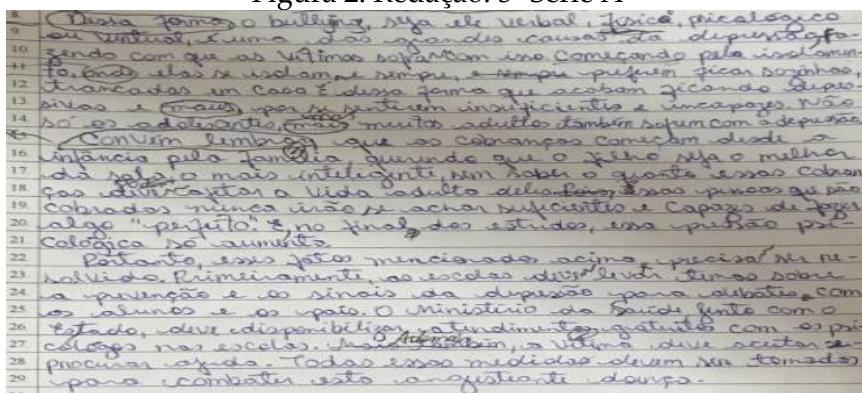 Figura 2. Redação. 3ª Série A
8. Dessa forma, o bullying, seja ele verbal, físico, psicológico
9 ou virtual, é uma das grandes causas da depressão, fa-
10 zendo com que as vítimas sofram com isso começando pelo isolamen-
11 to, onde elas se isolam sempre, e sempre preferem ficar sozinhas,
12 trancadas em casa. É dessa forma que acabam ficando depres-
13 sivas e maus por se sentirem insuficientes e incapazes. Não
14 só os adolescentes, mas muitos adultos também sofrem com a depressão
15 Convém lembrar que as cobranças começam desde a
16 infância pela família, querendo que o filho seja o melhor
17. da sala, o mais inteligente, sem saber o quanto essas cobran
18. ças afetar a vida adulta deles. Essas pessoas que são
19. cobradas nunca irão se achar suficientes e capazes de fazer
20. algo "perfeito". E, no final dos estudos, essa pressão psi-
21 cológica só aumenta.
22 Patanto, esses fatos mencionados acima, precisa ser re-
23 solvido. Primeiramente, as escolas devem levar temas sobre
24 a prevenção e os sinais da depressão para debates, com
25 os alunos e os pais. O Ministério da Saúde, junto com o
26 Estado, deve disponibilizar atendimentos gratuitos com os psi
27 cólogos nas escolas. Ademais, a vítima deve aceitar e
28 procurar ajuda. Todas essas medidas devem ser tomadas
29 para combater esta angustiante doença.